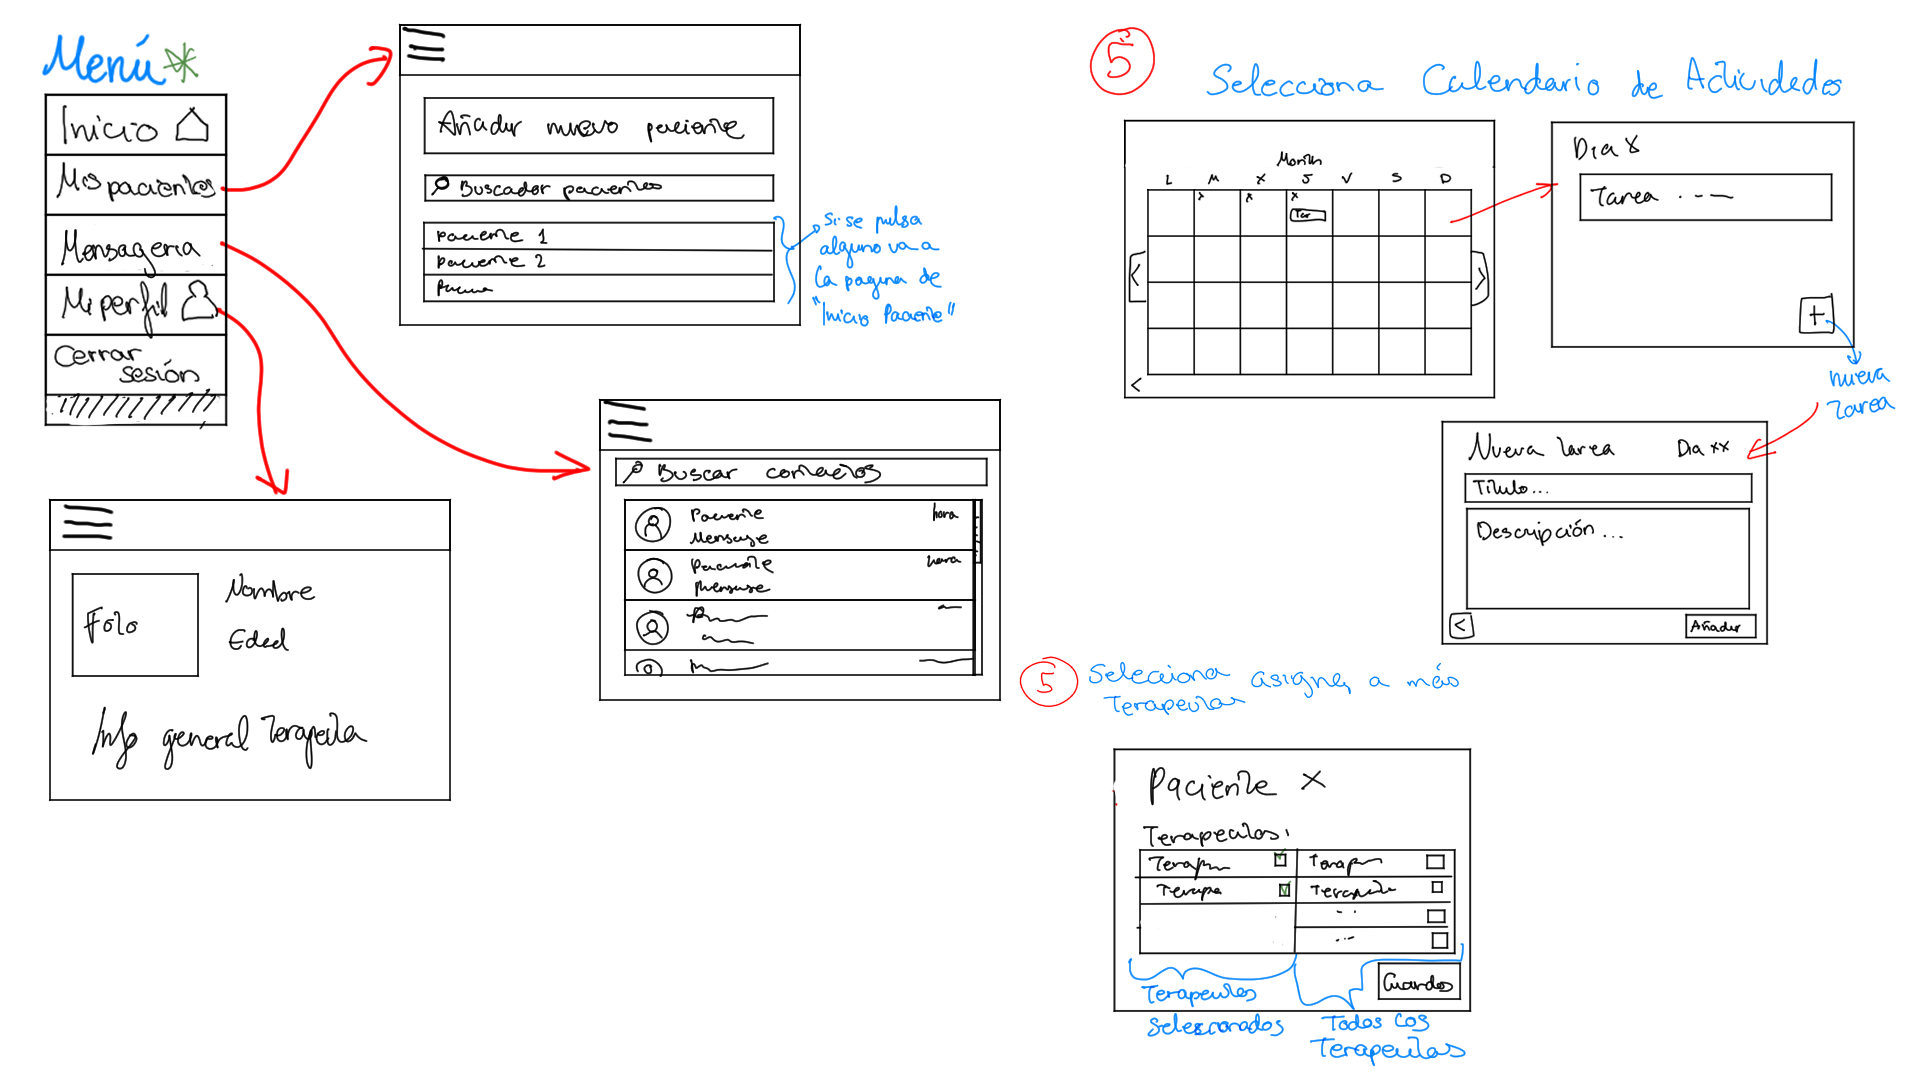 Menú
Inicio
Mis pacientes
Mensageria
Mi perfil
Cerrar
sesión
Añadir nuevo paciente
Buscador pacientes
Paciente 1
Paciente 2
Si se pulsa
alguno va a
la pagina de
"Inicio Paciente"
Foto
Nombre
Edad
Info general Terapeuta
Buscar contactos
Paciente hora
Mensaje
Paciente hora
Mensaje
5
Selecciona Calendario de Actividades
Month
L M X J V S D
x x x
Tar
<
>
<
Dia X
Tarea . - -
+
nueva
Tarea
Nueva tarea Dia xx
Titulo...
Descripción ...
<
Añadir
5
Selecciona asignar a más
Terapeutas
Paciente X
Terapeutas:
Terapeu
Terapeu
Terape
Terapeuta
...
...
Guardar
Terapeutas
Seleccionados
Todos los
Terapeutas